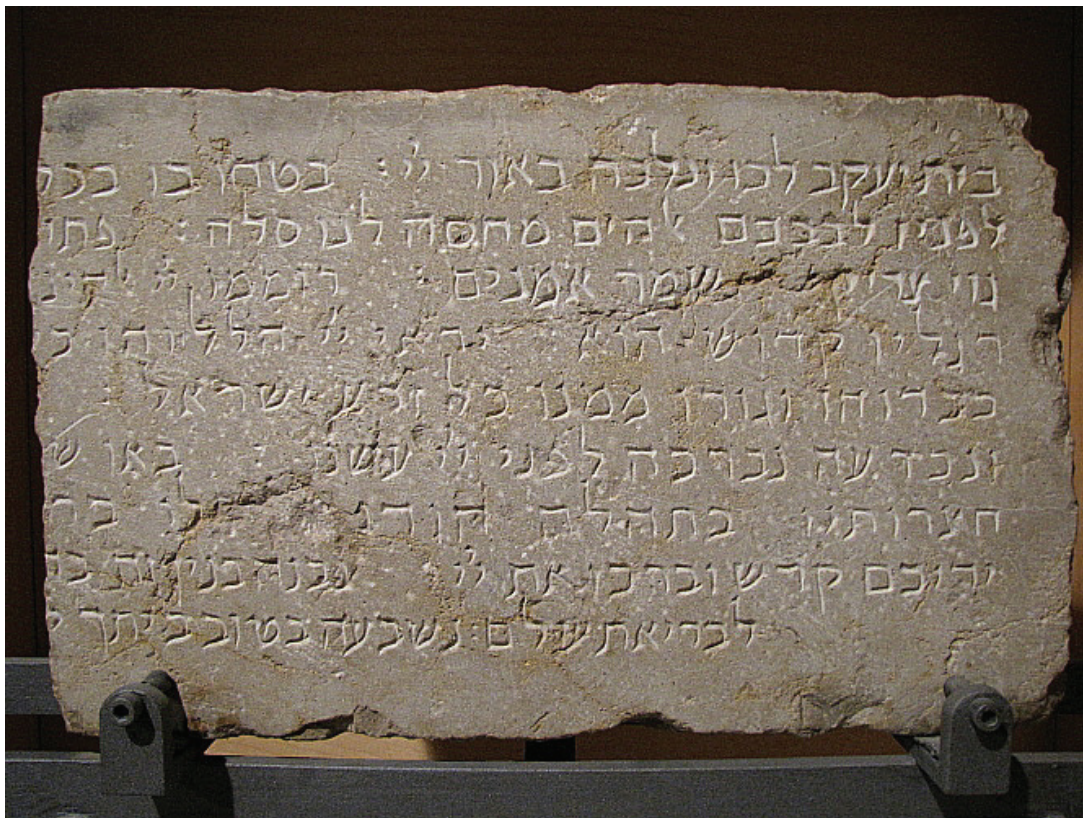 בית יעקב לכו ונלכה באור יי : בטחו בו בכל
לפניו לבבכם להים מחסה לנו סלה : פתח
גוי צדיק שמר אמנים : רוממו יי
רגליו קדוש הוא יראי יי הללוהו כ
כבדוהו וגורו ממנו כל זרע ישראל :
ונכרעה נברכה לפני יי עשנו : באו ש
חצרותיו בתהלה הודו לו בר
ידיכם קדש וברכו את יי
לבריאת עולם נשבעה בטוב ביתך